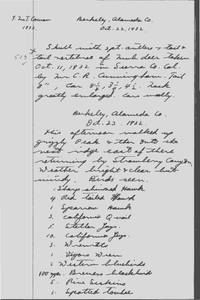 Berkeley, Alameda Co.
Oct. 22, 1902
1902
Skull with spt. antlers & tail &
tail vertebrae of Mule deer taken
Oct. 11, 1902 in Sierra Co. Cal.
by Mr C. R. Cunningham. Tail
8", Ear
greatly enlarged
Berkeley, Alameda Co.
Oct. 23 1902
This afternoon walked up
Grizzly Peak & then out the
next ridge east of there
returning by Strawberry Canyon
Weather bright & clear but
windy. Birds seen.
1 Sharp shinned Hawk
4 Red tailed Hawk
1 Sparrow Hawk
3 California Quail
5 Steller Jays
10 California Jays
3 Wrentits
1 Vigors Wren
2 Western bluebirds
100 Brewers blackbird
5 Pine Siskins
1 Spotted towhee